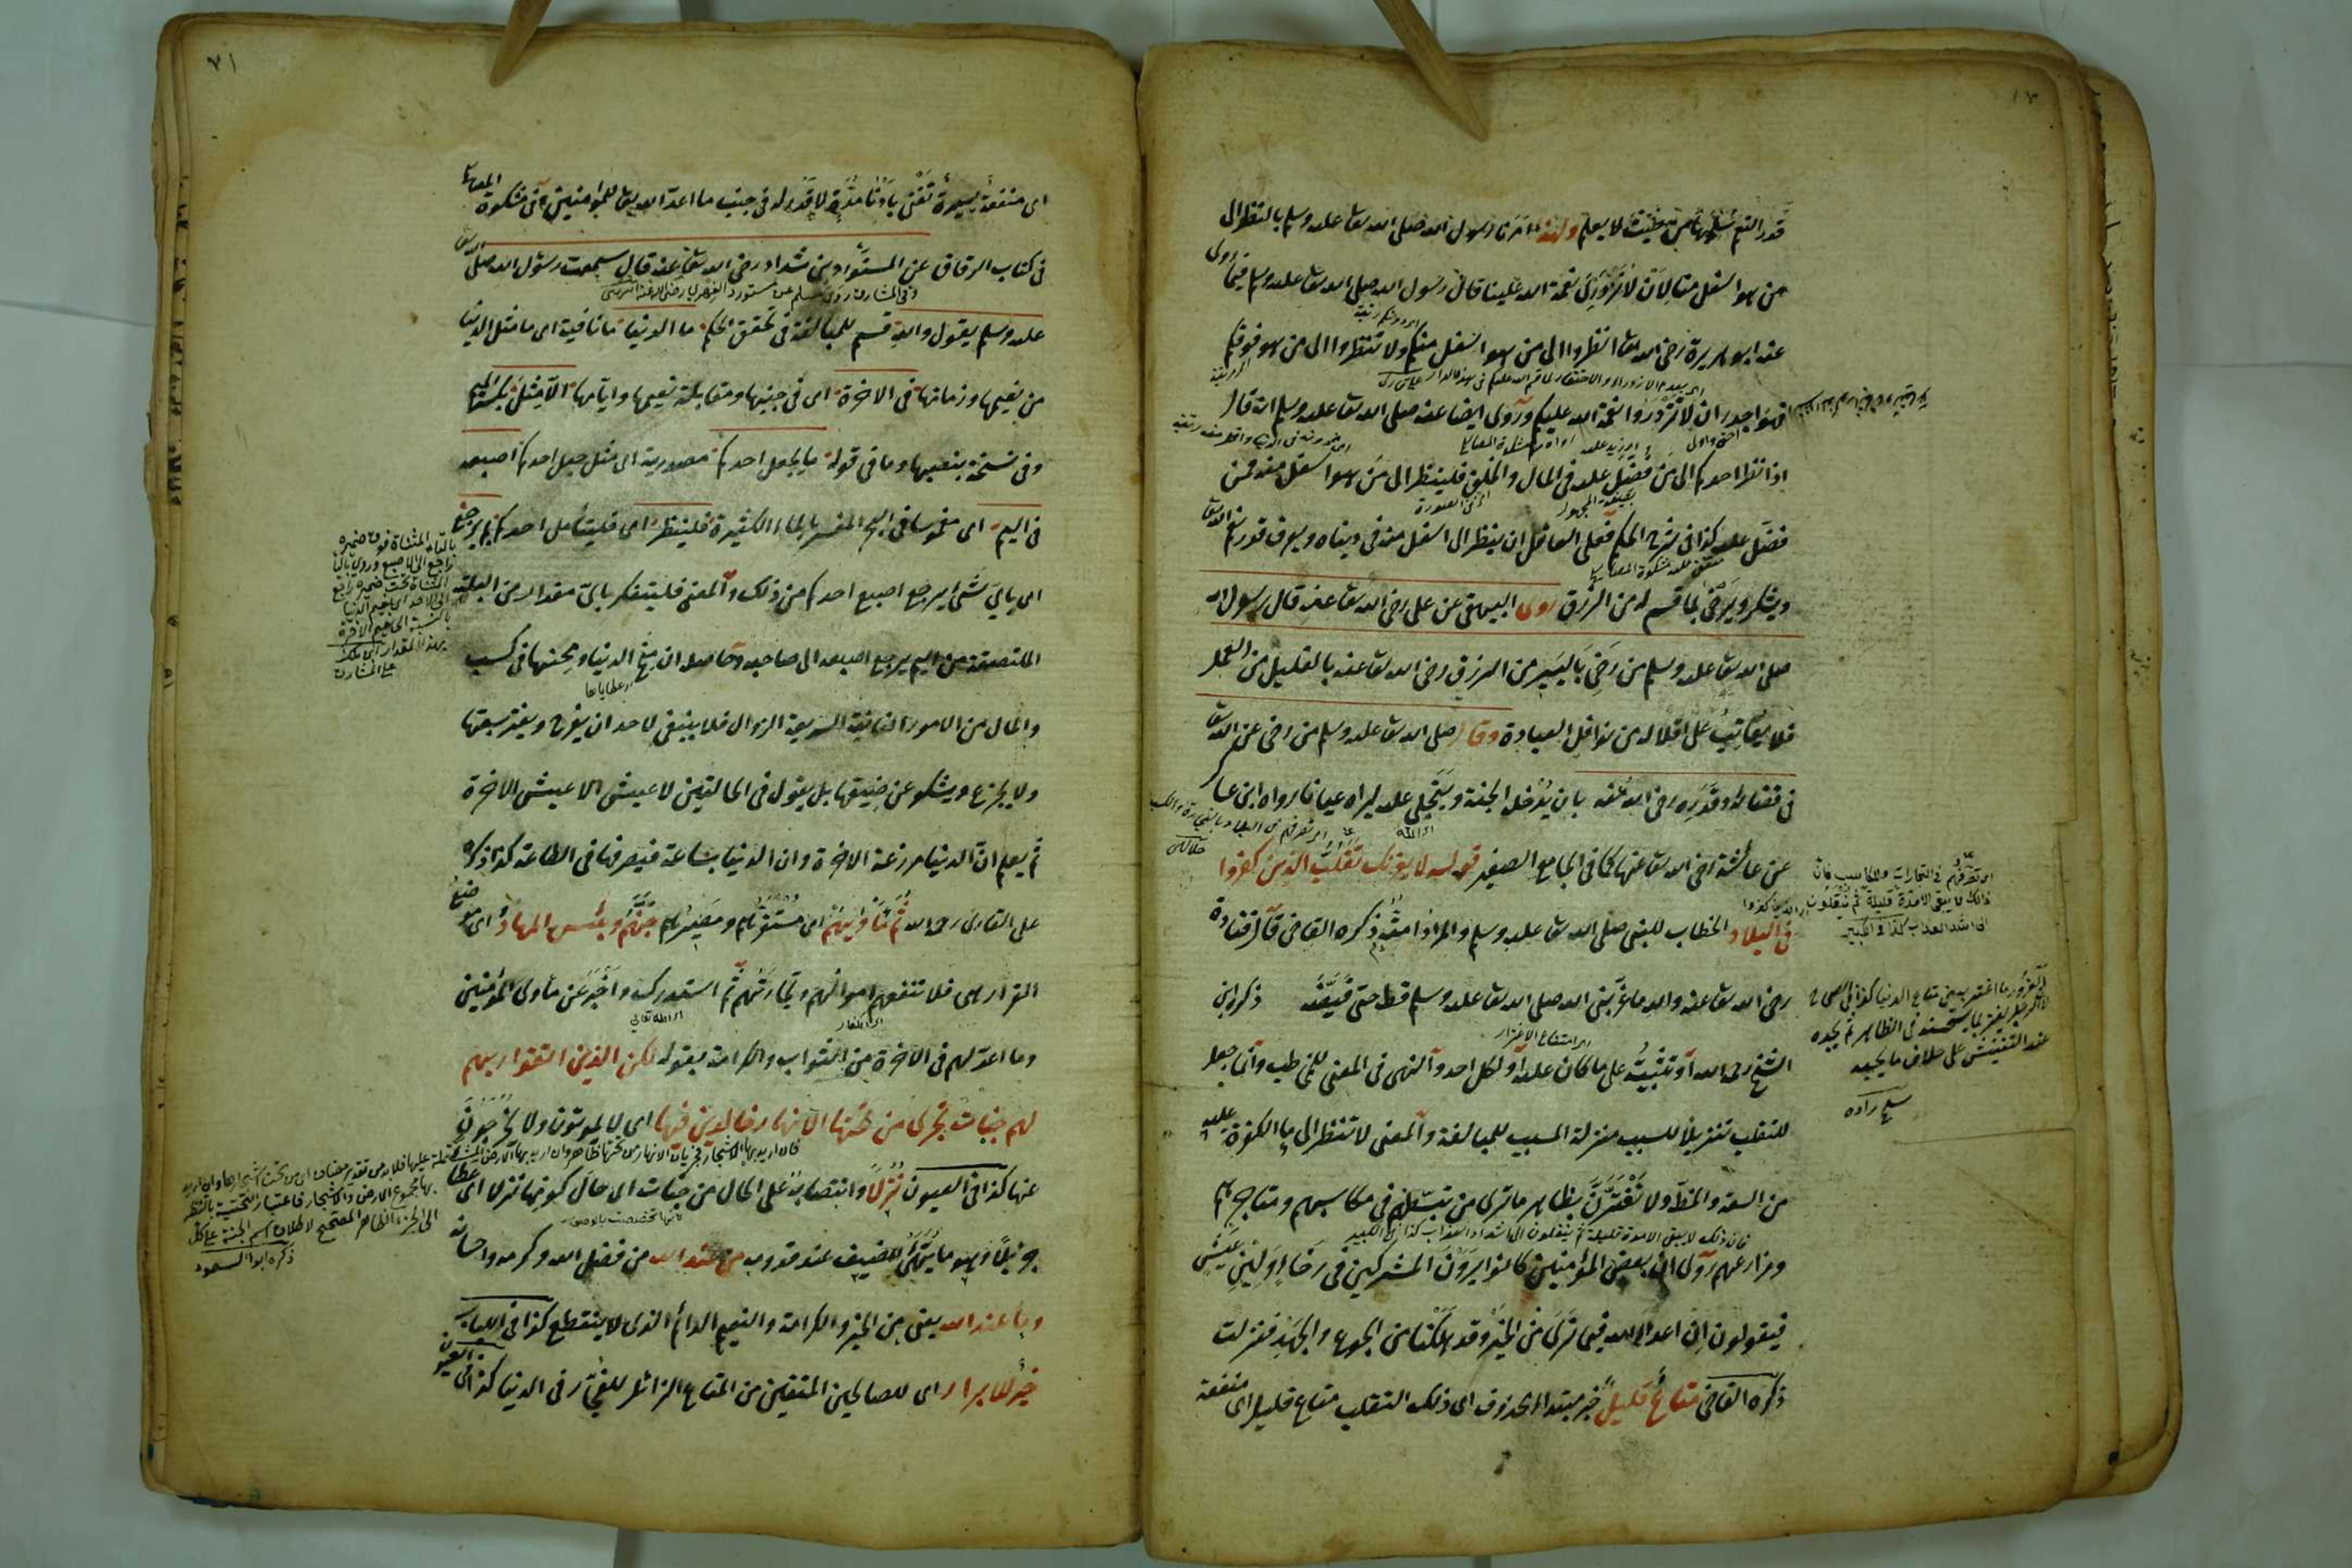 قدر النعم لا يعلم ولهذا امرنا رسول الله صلى الله تعا عليه وسلم بالنظر الى
من هو اسفل منا لان لا نزدرى نعمة الله علينا قال رسول الله صلى الله تعا عليه وسلم فيما روى
عنه ابو هريرة رضى الله تعا انظروا الى من هو اسفل منكم ولا تنظروا الى من هو فوقكم
فهو اجدر ان لا تزدروا نعمة الله عليكم وروى ايضا عنه صلى الله تعا عليه وسلم انه قال
اذا نظر احدكم الى من فضل عليه فى المال والخلق فلينظر الى من هو اسفل منه ممن
فضل عليه كذا فى فعلى العاقل ان ينظر الى اسفل منه فى دنياه ويعرف قدر نعم الله تعا
ويشكر ويرضى بما قسم له من الرزق روى البيهقى عن على رضى الله تعا عنه قال رسول الله
صلى الله تعا عليه وسلم من رضى باليسير من الرزق رضى الله تعا عنه بالقليل من العمل
فلا يعاتب على اقلاله من نوافل العبادة وقال صلى الله تعا عليه وسلم من رضى عن الله تعا
فى قضائه وقدره رضى الله عنه بان يدخله الجنة ويتجلى عليه ليراه عيانا رواه ابن عسا
عن عائشة رضى الله تعا عنها كما فى الجامع الصغير قوله لا يغرنك تقلب الذين كفروا
فى البلاد الخطاب للنبى صلى الله تعا عليه وسلم والمراد امته ذكره القاضى قال قتادة
رضى الله تعا عنه والله ما غر نبى الله صلى الله تعا عليه وسلم قط حتى قبضه ذكره ابن
الشيخ رحمه الله او تثبيت على ما كان عليه او لكل احد والنهى فى المعنى للمخاطب وانما جعل
للتقلب تنزيلا للسبب منزلة المسبب للمبالغة والمعنى لا تنظر الى ما الكفرة عليه
من السعة والحظ ولا تغترن بظاهر ما ترى من تبسطهم فى مكاسبهم ومتاجرهم
ومزارعهم روى ان بعض المؤمنين كانوا يرون المشركين فى رخاء ولين عيش
فيقولون ان اعداء الله فيما نرى من الخير وقد هلكنا من الجوع والجهد فنزلت
ذكره القاضى متاع قليل خبر مبتدا محذوف اى ذلك التقلب متاع قليل اى منفعة
اى تصرفهم فى التجارات والمكاسب فان
ذلك لا يبقى الا مدة قليلة ثم ينقلون
الى اشد العذاب كذا فى الكبير
الغرور ما اغتر به من متاع الدنيا كذا فى الصحاح
عند التفتيش على خلاف ما يحبه
٧١
اى منفعة يسيرة تفنى بادنى مدة لا قدر له فى جنب ما اعد الله تعا للمؤمنين فى مشكوة المصابيح
فى كتاب الرقاق عن المستورد بن شداد رضى الله تعا عنه قال سمعت رسول الله صلى الله تعا
عليه وسلم يقول والله قسم للمبالغة فى تحقق الحكم ما الدنيا ما نافية اى ما مثل الدنيا
من نعيمها وزمانها فى الاخرة اى فى جنبها ومقابلة نعيمها وايامها الا مثل بكسر الميم
وفى نسخة بنصبها وما فى قوله ما يجعل احدكم مصدرية اى مثل جعل احدكم اصبعه
فى اليم اى مغموسا فى البحر المفسر بالماء الكثير فلينظر اى فليتأمل احدكم بم يرجع
اى باى شئ يرجع اصبع احدكم من ذلك والمعنى فليتفكر باى مقدار من البلة
الملتصقة من اليم يرجع اصبعه الى صاحبه وحاصله ان منح الدنيا ومحنها فى كسب
والمال من الامور الفانية السريعة الزوال فلا ينبغى لاحد ان يفرح ويغتر بسعتها
ولا يجزع ويشكو عن ضيقها بل يقول فى الحالتين لا عيش الا عيش الاخرة
ثم يعلم ان الدنيا مزرعة الاخرة وان الدنيا ساعة فيصرفها فى الطاعة كذا ذكره
على القارى رحمه الله ثم مأويهم اى مستقرهم ومصيرهم جهنم وبئس المهاد اى موضع
القرار هى فلا تنفعهم اموالهم وتجارتهم ثم استدرك واخبر عن مأوى المؤمنين
وما اعد لهم فى الاخرة من الثواب والكرامة بقوله لكن الذين اتقوا ربهم
لهم جنات تجرى من تحتها الانهار خالدين فيها اى لا يموتون ولا يخرجون
عنها كذا فى العيون نزلا وانتصابه على الحال من جنات اى حال كونها نزلا اى عطاء
جزيلا وهو ما يهيأ للضيف عند قدومه من عند الله من فضل الله وكرمه واحسانه
وما عند الله يعنى من الخير والكرامة والنعيم الدائم الذى لا ينقطع كذا فى اللباب
خير للابرار اى للصالحين المتقين من المتاع الزائل للفجار فى الدنيا كذا فى العيون
بالتاء المثناة فوق ضميره
راجع الى الاصبع وروى بالياء
المثناة تحت ضميره راجع
الى الاحد
بالنسبة الى نعيم الاخرة
بهذا المقدار ابن ملك
على المشارق
الى الجزء الظاهر المصحح لاطلاق اسم الجنة على الكل
ذكره ابو السعود